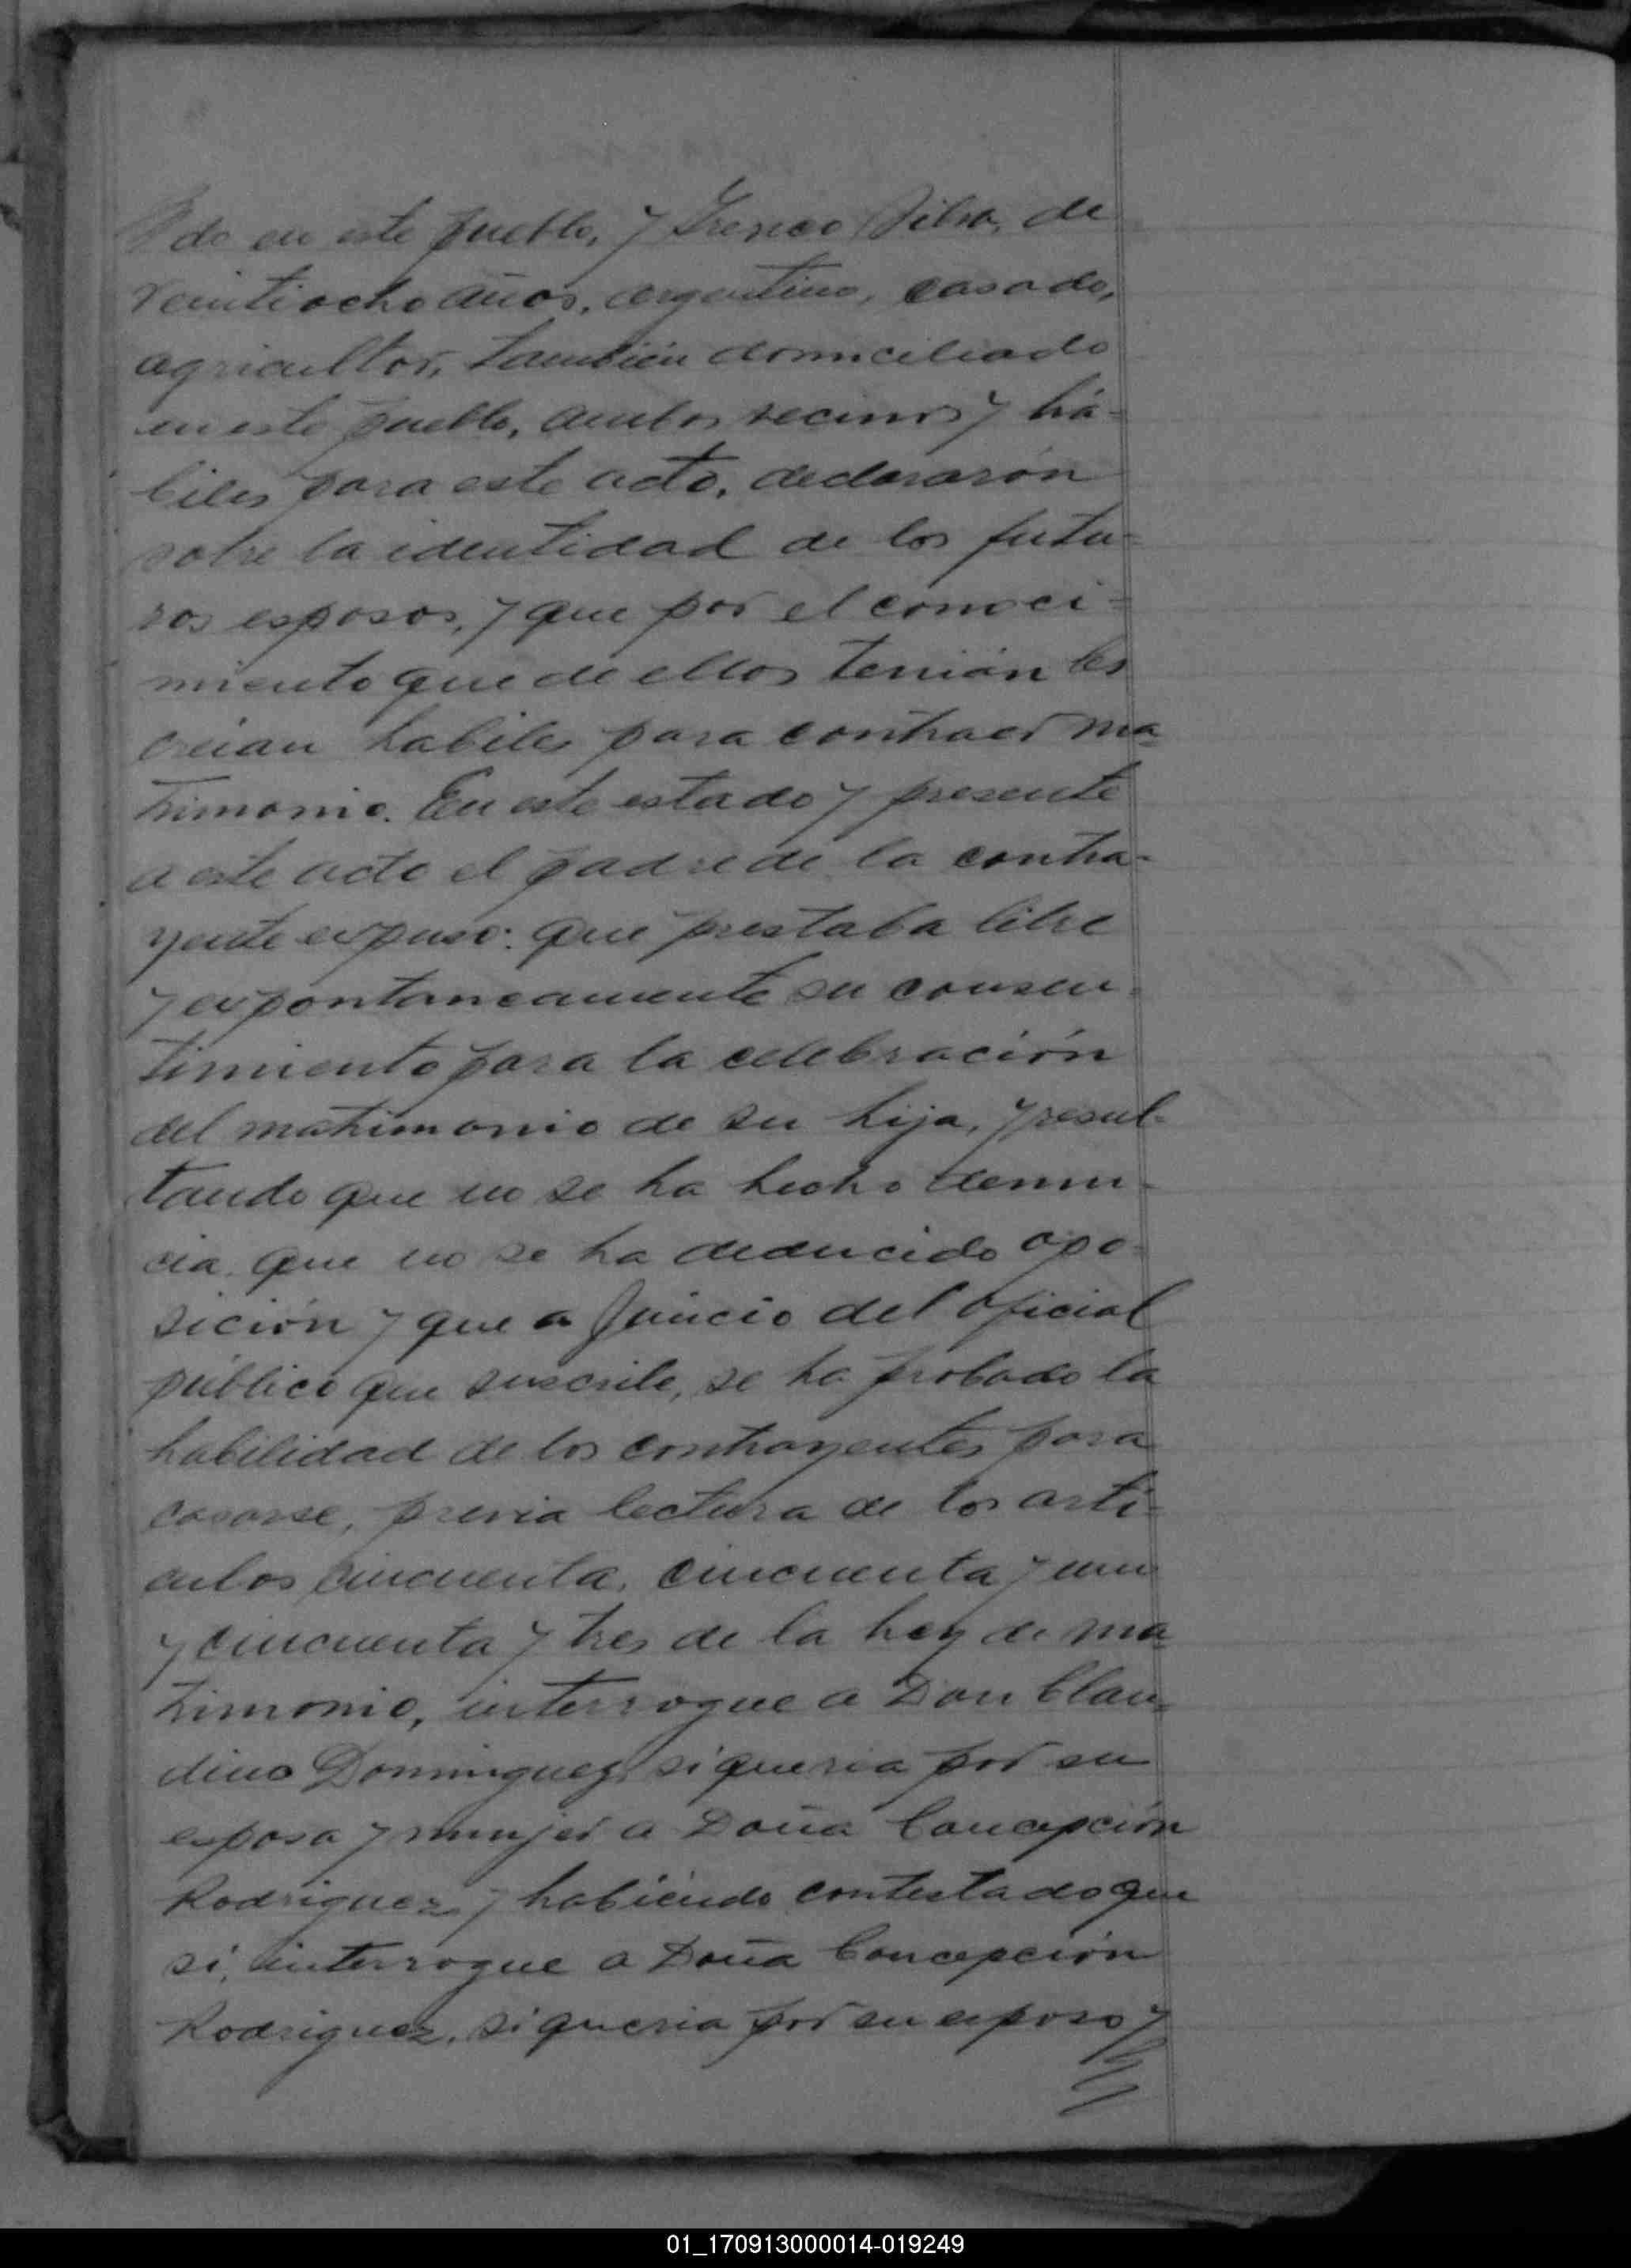 do en este pueblo, y Ireneo Silva, de
veintiocho años, argentino, casado,
agricultor, también domiciliado
en este pueblo, ambos vecinos y há=
biles para este acto, declararón
sobre la identidad de los futu=
ros esposos, y que por el conoci=
miento que de ellos tenián los
creian habiles para contraer ma=
trimonio. En este estado y presente
a este acto el padre de la contra-
yente expuso: que prestaba libre
y expontaneamente su consen-
timiento para la celebración
del matrimonio de su hija, y resul-
tando que no se ha hecho denun-
cia que no se ha deducido opo-
sición y que a Juicio del oficial
público que suscribe, se ha probado la
habilidad de los contrayentes para
casarse, previa lectura de los arti=
culos cincuenta, cincuenta y uno
y cincuenta y tres de la ley de ma=
trimonio, interrogue a Don Clau=
dino Dominguez si queria por su
esposa y mujer a Doña Concepción
Rodriguez y habiendo contestado que
si, interrogue a Doña Concepción
Rodriguez, si queria por su esposo y
01_170913000014-019249